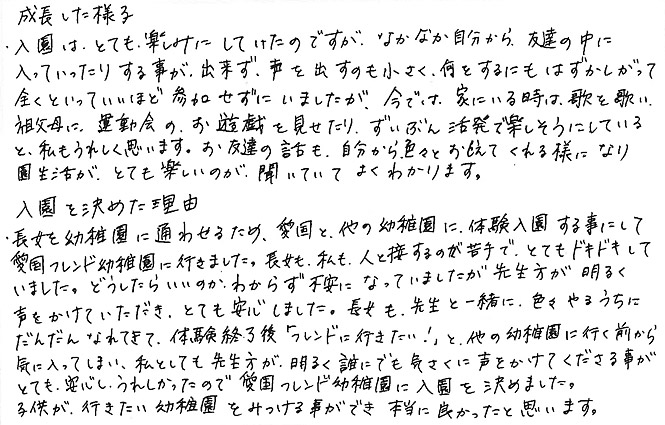 成長した様子
・入園は、とても楽しみにしていたのですが、なかなか自分から、友達の中に
入っていったりする事が、出来ず、声を出すのも小さく、何をするにもはずかしがって
全くといっていいほど参加せずにいましたが、今では、家にいる時は、歌を歌い、
祖父母に、運動会の、お遊戯を見せたり、ずいぶん活発で楽しそうにしている
と、私もうれしく思います。お友達の話も、自分から色々とお話してくれる様になり
園生活が、とても楽しいのが、聞いていてよくわかります。
入園を決めた理由
・長女を幼稚園に通わせるため、愛国と、他の幼稚園に、体験入園する事にして
愛国フレンド幼稚園に行きました。長女も、私も、人と接するのが苦手で、とてもドキドキして
いました。どうしたらいいのか、わからず不安になっていましたが先生方が明るく
声をかけていただき、とても安心しました。長女も、先生と一緒に、色々やるうちに
だんだんなれてきて、体験終了後「フレンドに行きたい!」と、他の幼稚園に行く前から
気に入ってしまい、私としても先生方が、明るく誰にでも気さくに声をかけてくださる事が
とても、安心し、うれしかったので愛国フレンド幼稚園に入園を決めました。
子供が、行きたい幼稚園をみつける事ができ本当に良かったと思います。